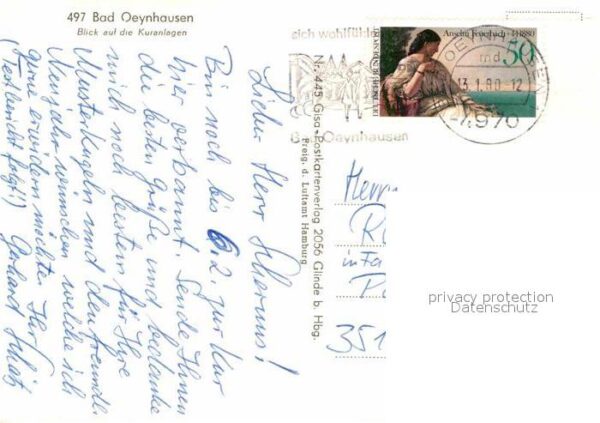 497 Bad Oeynhausen
Blick auf die Kuranlagen
Lieber Herr
Bin noch bis 6.2. zur Kur
hier verbannt. Sende Ihnen
die besten Grüße und bedanke
mich noch bestens für Ihre
Musterkugeln und den freundl.
Neujahrswünschen welche ich
gerne erwidern möchte. Ihr
(Testbericht folgt!) Gerhard
Nr. 445 Gisa-Postkartenverlag 2056 Glinde b. Hbg.
Freig. d. Luftamt Hamburg
sich wohlfühlen
Bad Oeynhausen
Anselm Feuerbach · †1880
50
DEUTSCHE BUNDESPOST
13.1.80-12
4970
Herrn
351
privacy protection
Datenschutz